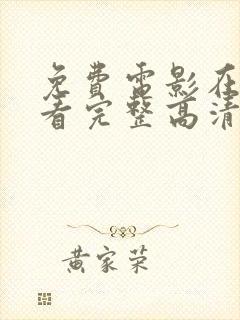 免費電影在
看完整高清
黃家荣